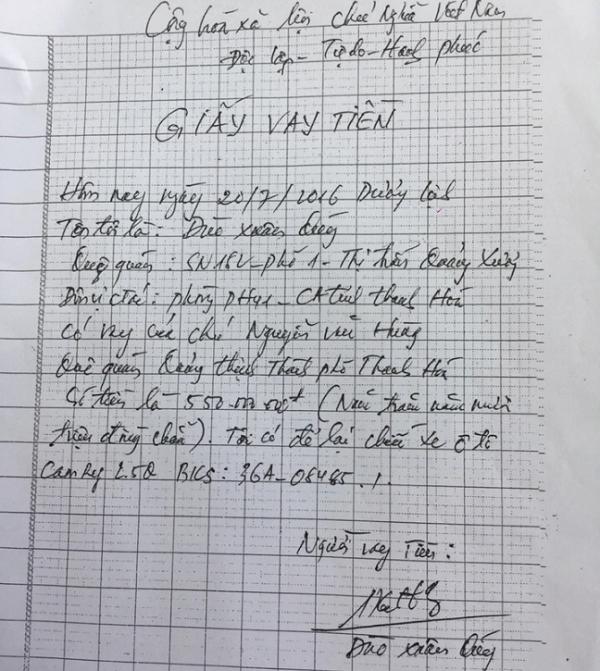 Cộng hoà xã hội chủ Nghĩa Việt Nam
Độc lập - Tự do - Hạnh phúc
GIẤY VAY TIỀN
Hôm nay ngày 20/7/2016 Dương lịch
Tên tôi là: Đào xuân
Quê quán: SN 18V - phố 1 - Thị trấn Quảng Xương
Đơn vị ctác: phòng PH41 - CA tỉnh thanh Hoá
Có vay của chú Nguyễn Hưng
Quê quán Quảng thịnh Thành phố Thanh Hoá
Số tiền là 550.000.000đ (Năm trăm năm mươi
triệu đồng chẵn). Tôi có để lại chiếc xe ô tô
CamRy 2.5Q BKS: 36A-08485./.
Người vay Tiền:
Đào xuân